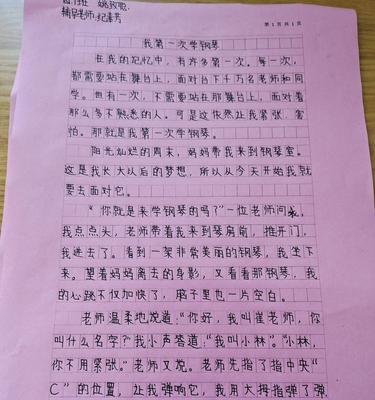 四.1班 姚致聪
辅导老师:纪素芳
第 1 页 共 1 页
我第一次学钢琴
在我的记忆中，有许多第一次。每一次，
都需要站在舞台上，面对台下千万名老师和同
学。也有一次，不需要站在那舞台上，面对着
那么多不熟悉的人。可是这依然让我紧张，害
怕。那就是我第一次学钢琴。
阳光灿烂的周末，妈妈带我来到钢琴室。
这是我长大以后的梦想，所以从今天开始我就
要去面对它。
“你就是来学钢琴的吗?”一位老师问我，
我点点头，老师带着我来到琴房前，推开门，
我进去了。看到一架非常美丽的钢琴，我坐下
来。望着妈妈离去的身影，又看看那钢琴，我
的心跳不仅加快了，脑子里也一片空白。
老师温柔地说道：“你好，我叫崔老师，你
叫什么名字?”我小声答道：“我叫小林”。“小林，
你不用紧张。”老师又说。老师先指了指中央“
C”的位置，让我弹响它，我用大拇指弹了弹